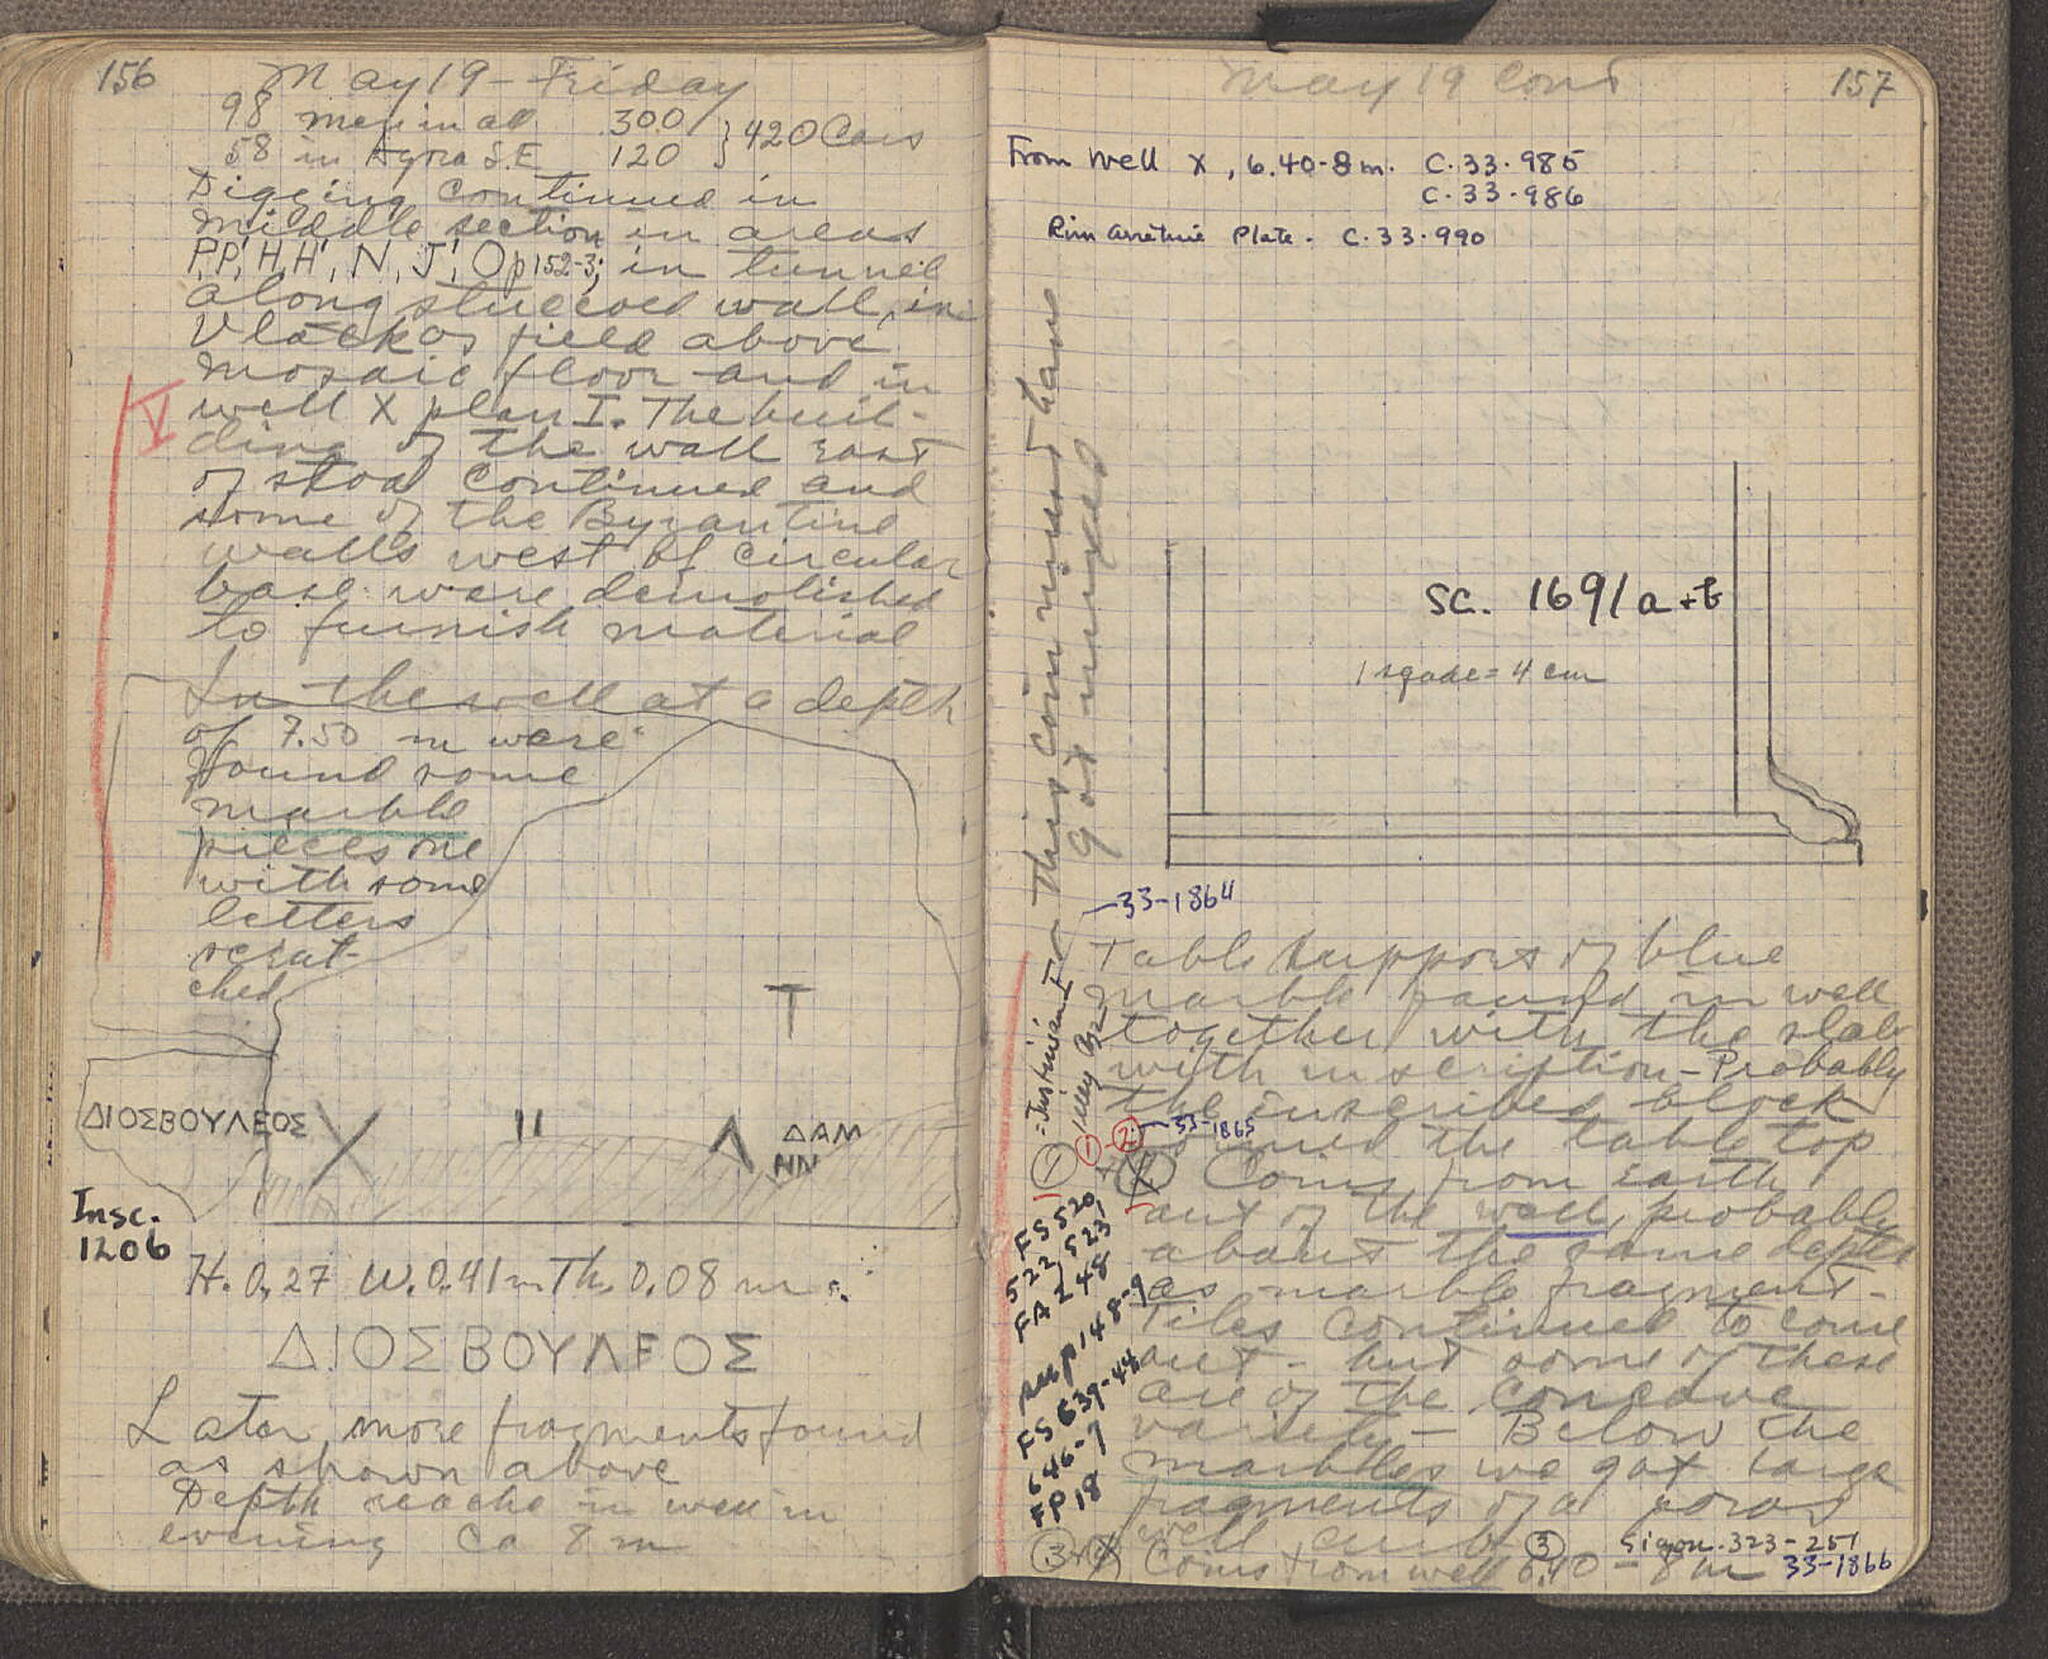 156
May 19 - Friday
98 men in all 300 } 420 Cars
58 in Agora S.E 120
Digging continued in
middle section in areas
P,P', H,H', N, J', O p152-3; in tunnel
along stuccoed wall, in
Vlachos field above
mosaic floor and in
well X plan I. The buil-
ding of the wall east
of stoa continued and
some of the Byzantine
walls west of circular
base were demolished
to furnish material
V
In the well at a depth
of 7.50 m were
found some
marble
pieces one
with some
letters
scrat-
ched
T
ΔΙΟΣΒΟΥΛΕΟΣ
ΔΑΜ
ΗΝ
Insc.
1206
H. 0,27 W. 0.41 m Th. 0.08 m
ΔΙΟΣΒΟΥΛΕΟΣ
Later more fragments found
as shown above
Depth reached in well in
evening ca 8 m
May 19 Cont
157
From Well X, 6.40-8m. C.33.985
C.33.986
Rim Arretine Plate - C.33.990
This coin
got mixed
SC. 1691 a+b
1 square = 4 cm
33-1864
Table support of blue
marble found in well
together with the slab
with inscription - Probably
the inscribed block
formed the table top
1-2: 33-1865
Coins from earth
out of the well, probably
about the same depth
as marble fragment -
Tiles continued to come
out - but some of these
are of the concave
variety - Below the
marbles we got large
fragments of a poros
well curb
3 Sigon. 323-251
Coins from well 6.40 - 8 m 33-1866
FS 520,
522, 523,
FA 248
see p 148-9
FS 639-44
646-7
FP 18